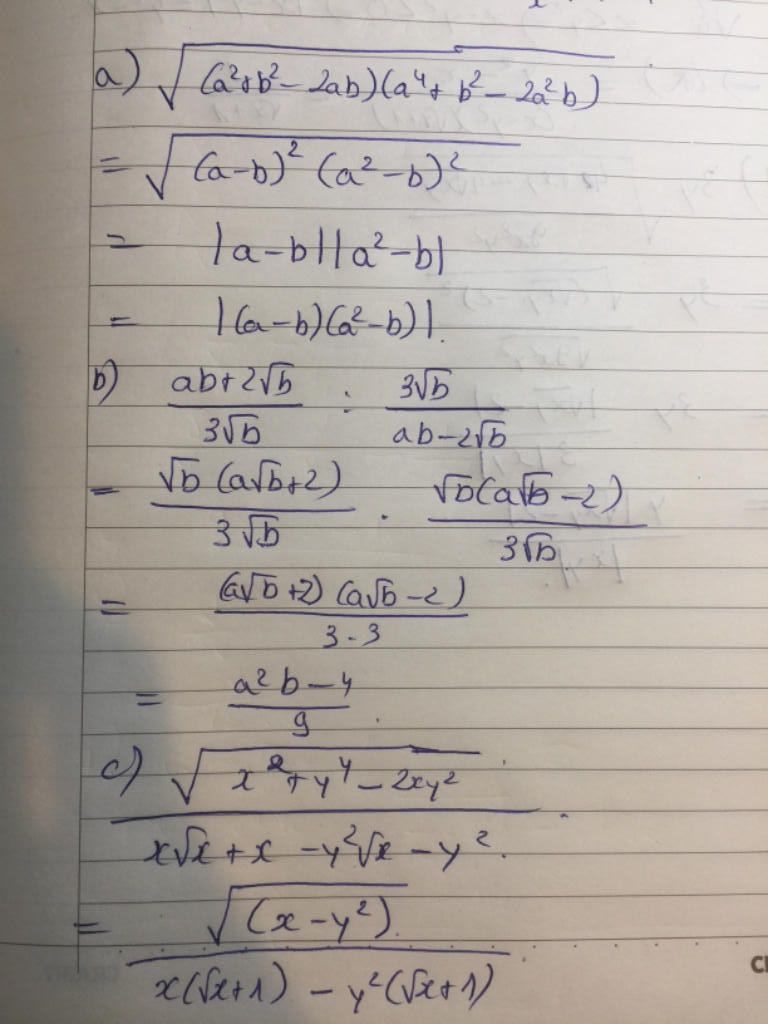 a) √((a²+b²-2ab)(a⁴+b²-2a²b))
= √((a-b)² (a²-b)²)
= |a-b||a²-b|
= |(a-b)(a²-b)|.
b) (ab+2√b)/(3√b) : (3√b)/(ab-2√b)
= (√b(a√b+2))/(3√b) . (√b(a√b-2))/(3√b)
= ((a√b+2)(a√b-2))/(3.3)
= (a²b-4)/9.
c) √(x²+y⁴-2xy²)/(x√x+x-y²√x-y²).
= √((x-y²))/(x(√x+1)-y²(√x+1))